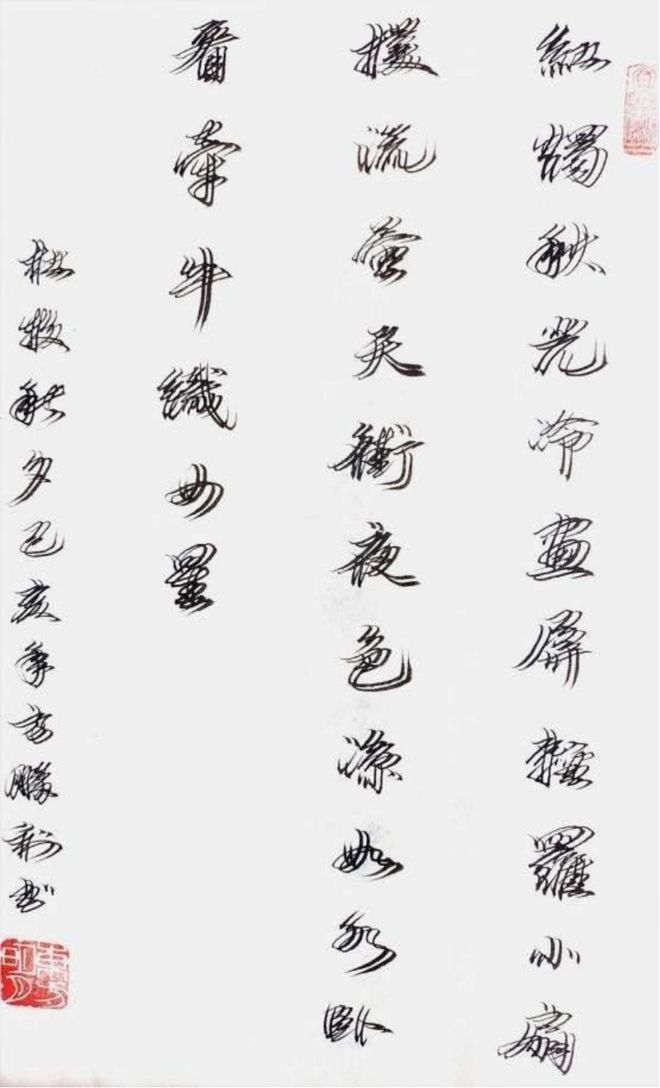 紅燭秋光冷畫屏輕羅小扇
撲流螢天街夜色涼如水卧
看牽牛織女星
杜牧秋夕己亥年鵬书